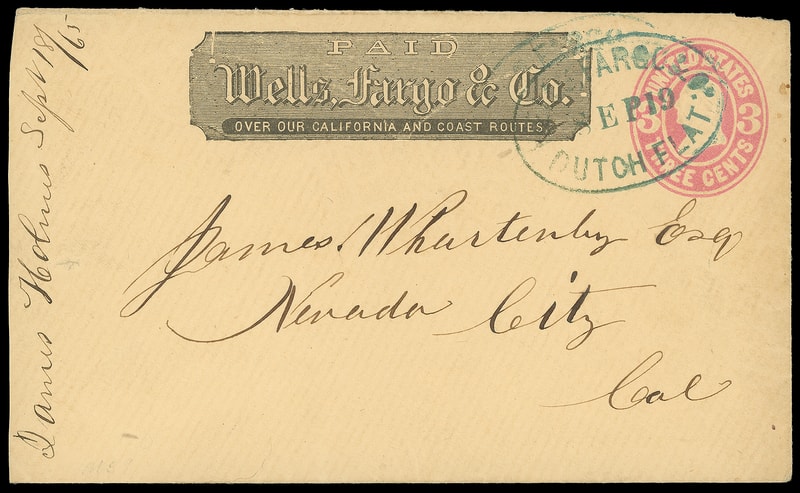 PAID
Wells, Fargo & Co.
OVER OUR CALIFORNIA AND COAST ROUTES.
FARGO
SEP 19
DUTCH FLAT.
UNITED STATES
3 3
THREE CENTS
James Whartenby Esq
Nevada City
Cal
James Holmes Sept 18/65